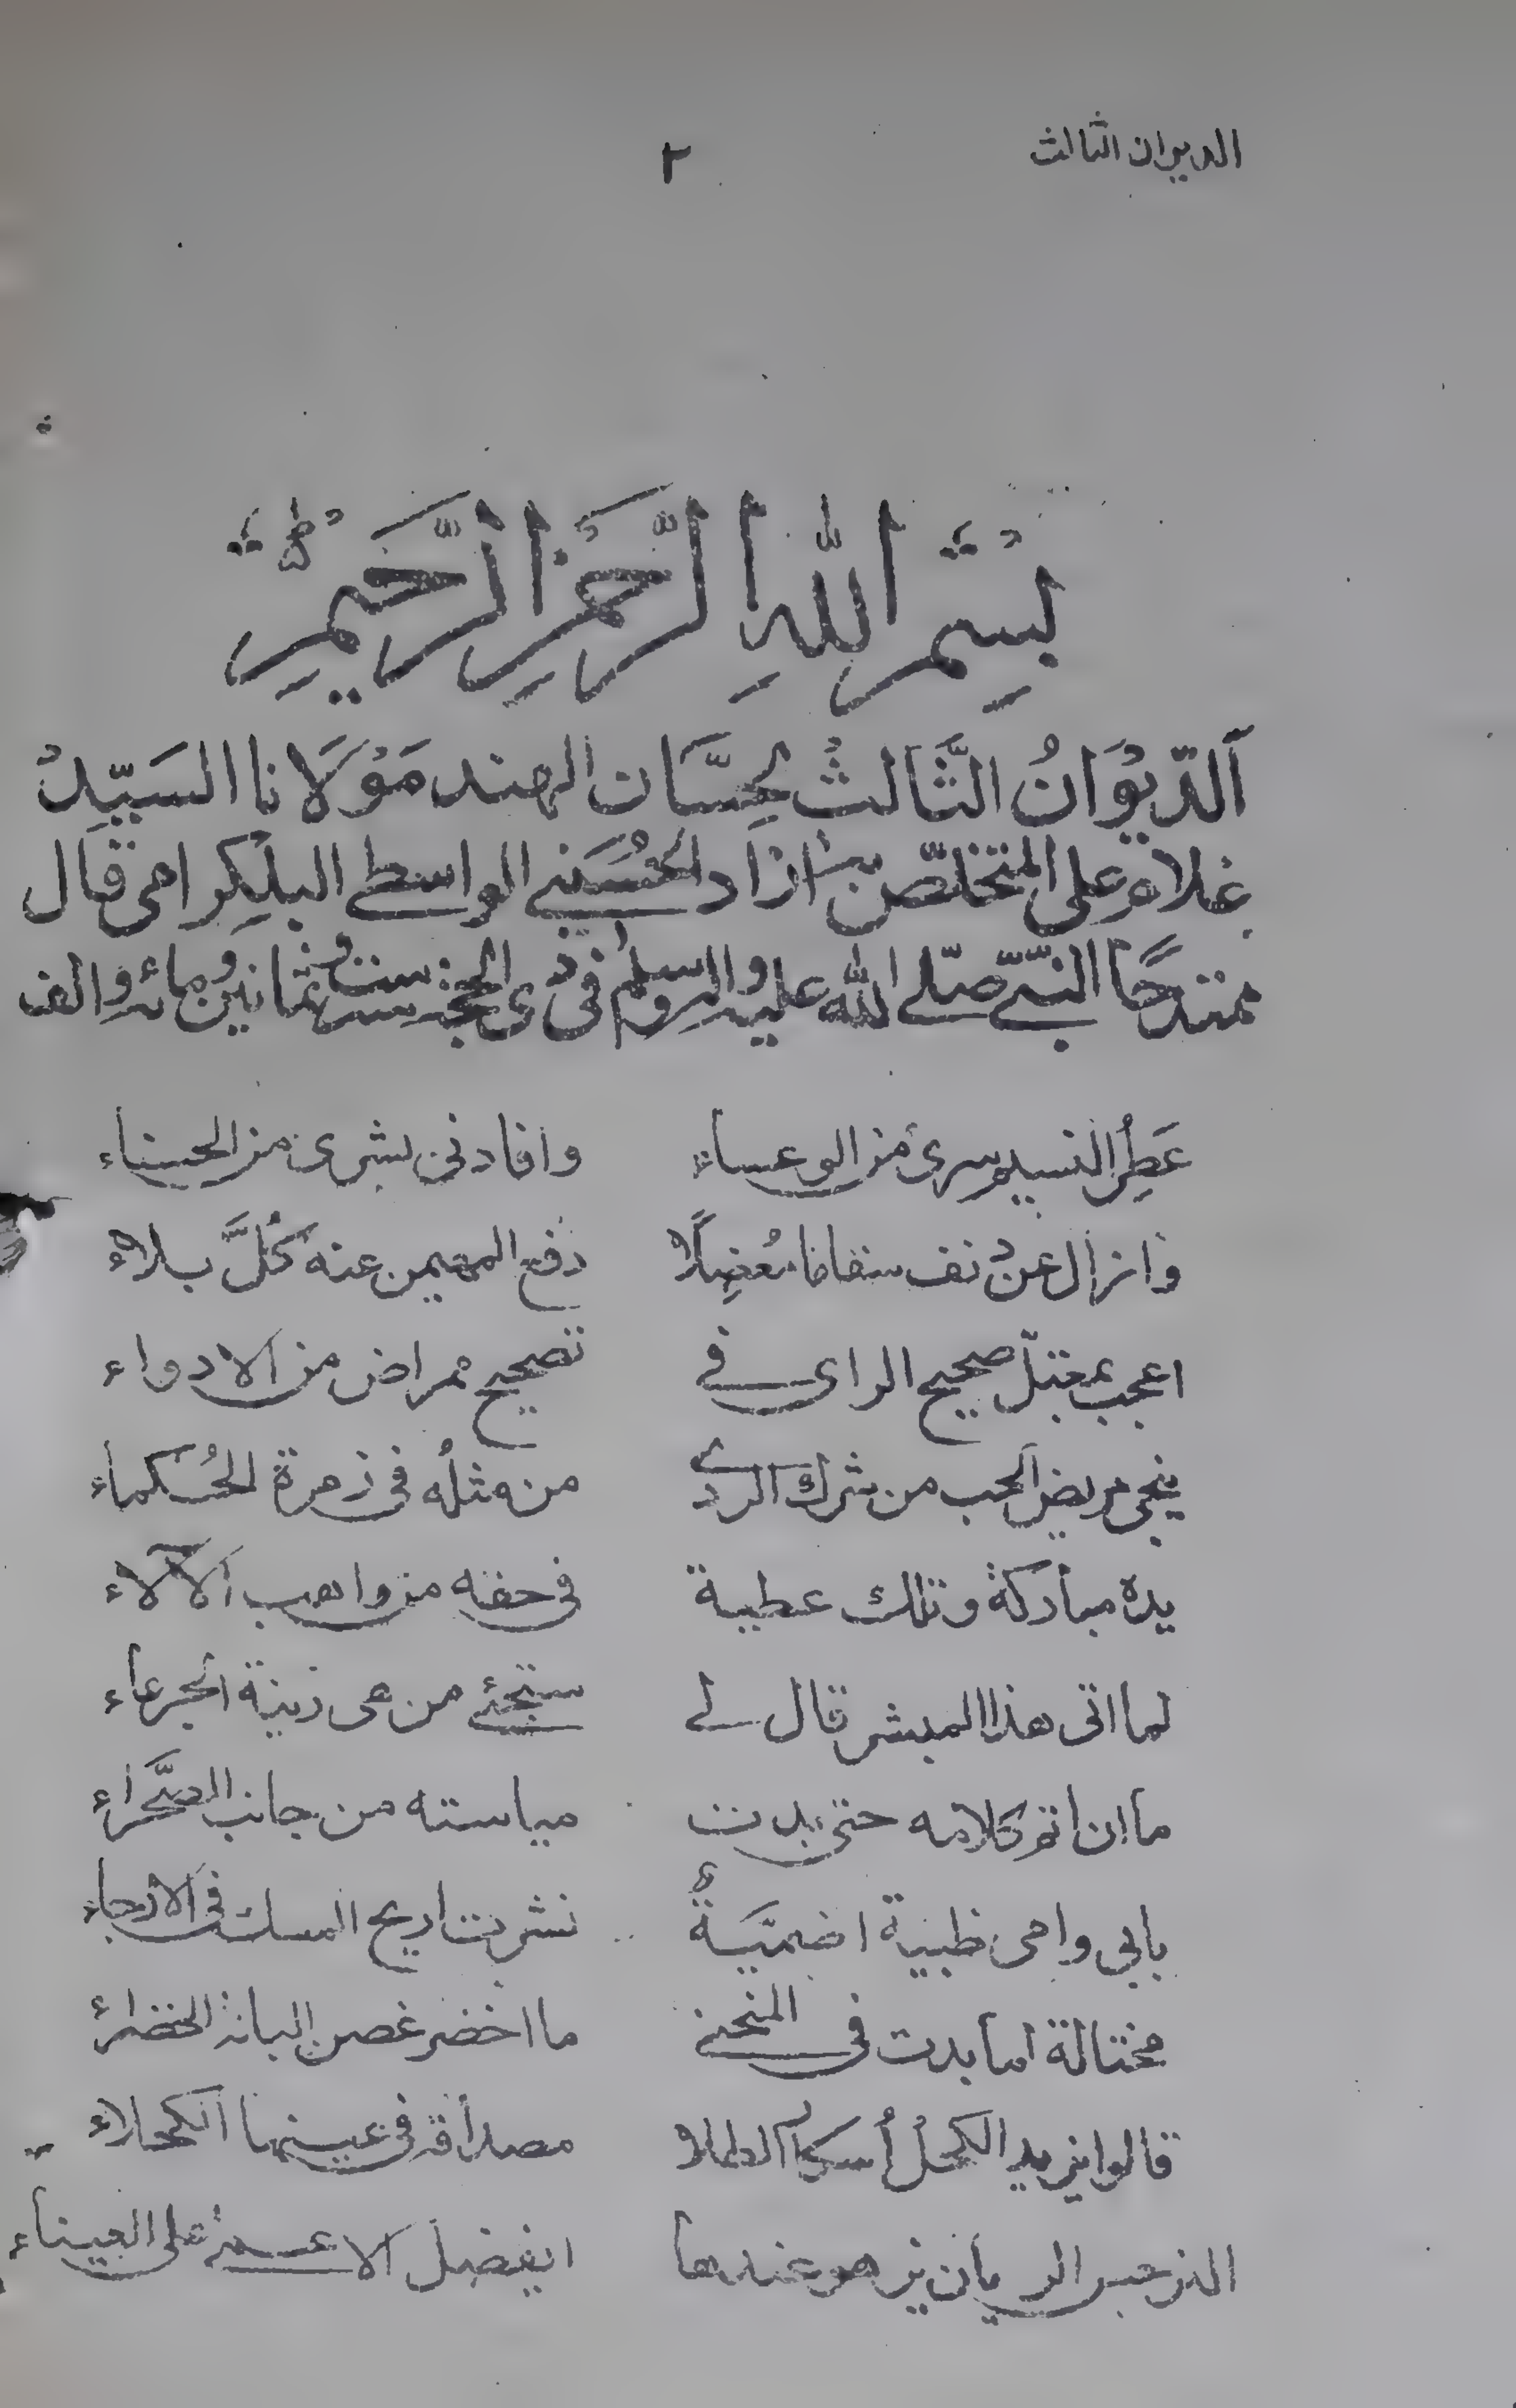 الديوان الثالث
٢
بِسْمِ اللهِ الرَّحْمٰنِ الرَّحِيْمِ
اَلدِّيْوَانُ الثَّالِثُ لِحِسَّان الهند مَوْلَانا السَيِّدْ
غلام على المتخلّص بـ ازاد الحُسَيني الواسطي البلكرامى قال
ممتدحًا النبيّ صلّى الله عليه واله وسلم فى ذى الحجة سنة ثمانين ومائة والف
عَطِرُ النسيم سرى من الوعساء وافادنى بشرى من الحسناء
وازال عن دنف سقاما مُعضِلًا دفع المهيمن عنه كُلَّ بلاء
اعجب بمعتلّ صحيح الراى فى تصحيح ممراض من الادواء
ينجى مريض الحب من شرك الردى من مثلُه فى زمرة الحُكماء
يده مباركة وتلك عطية فى حقه من واهب الآلاء
لما اتى هذا المبشر قال لى ستجئ من هى زينة الجرعاء
ما ان اتم كلامه حتى بدت مياسته من جانب الصَّحراء
بابى وامى ظبية اضميَّةٌ نشرت اريج المسك فى الارجاء
مختالة لما بدت فى المنحنى ما اخضر غصن البانة الخضراء
قالوا يزيد الكحلُ أسكار الطلا مصداقه فى عينها الكحلاء
النرجس الريان يزهو عندها ايفضل الاعمى على العيناء